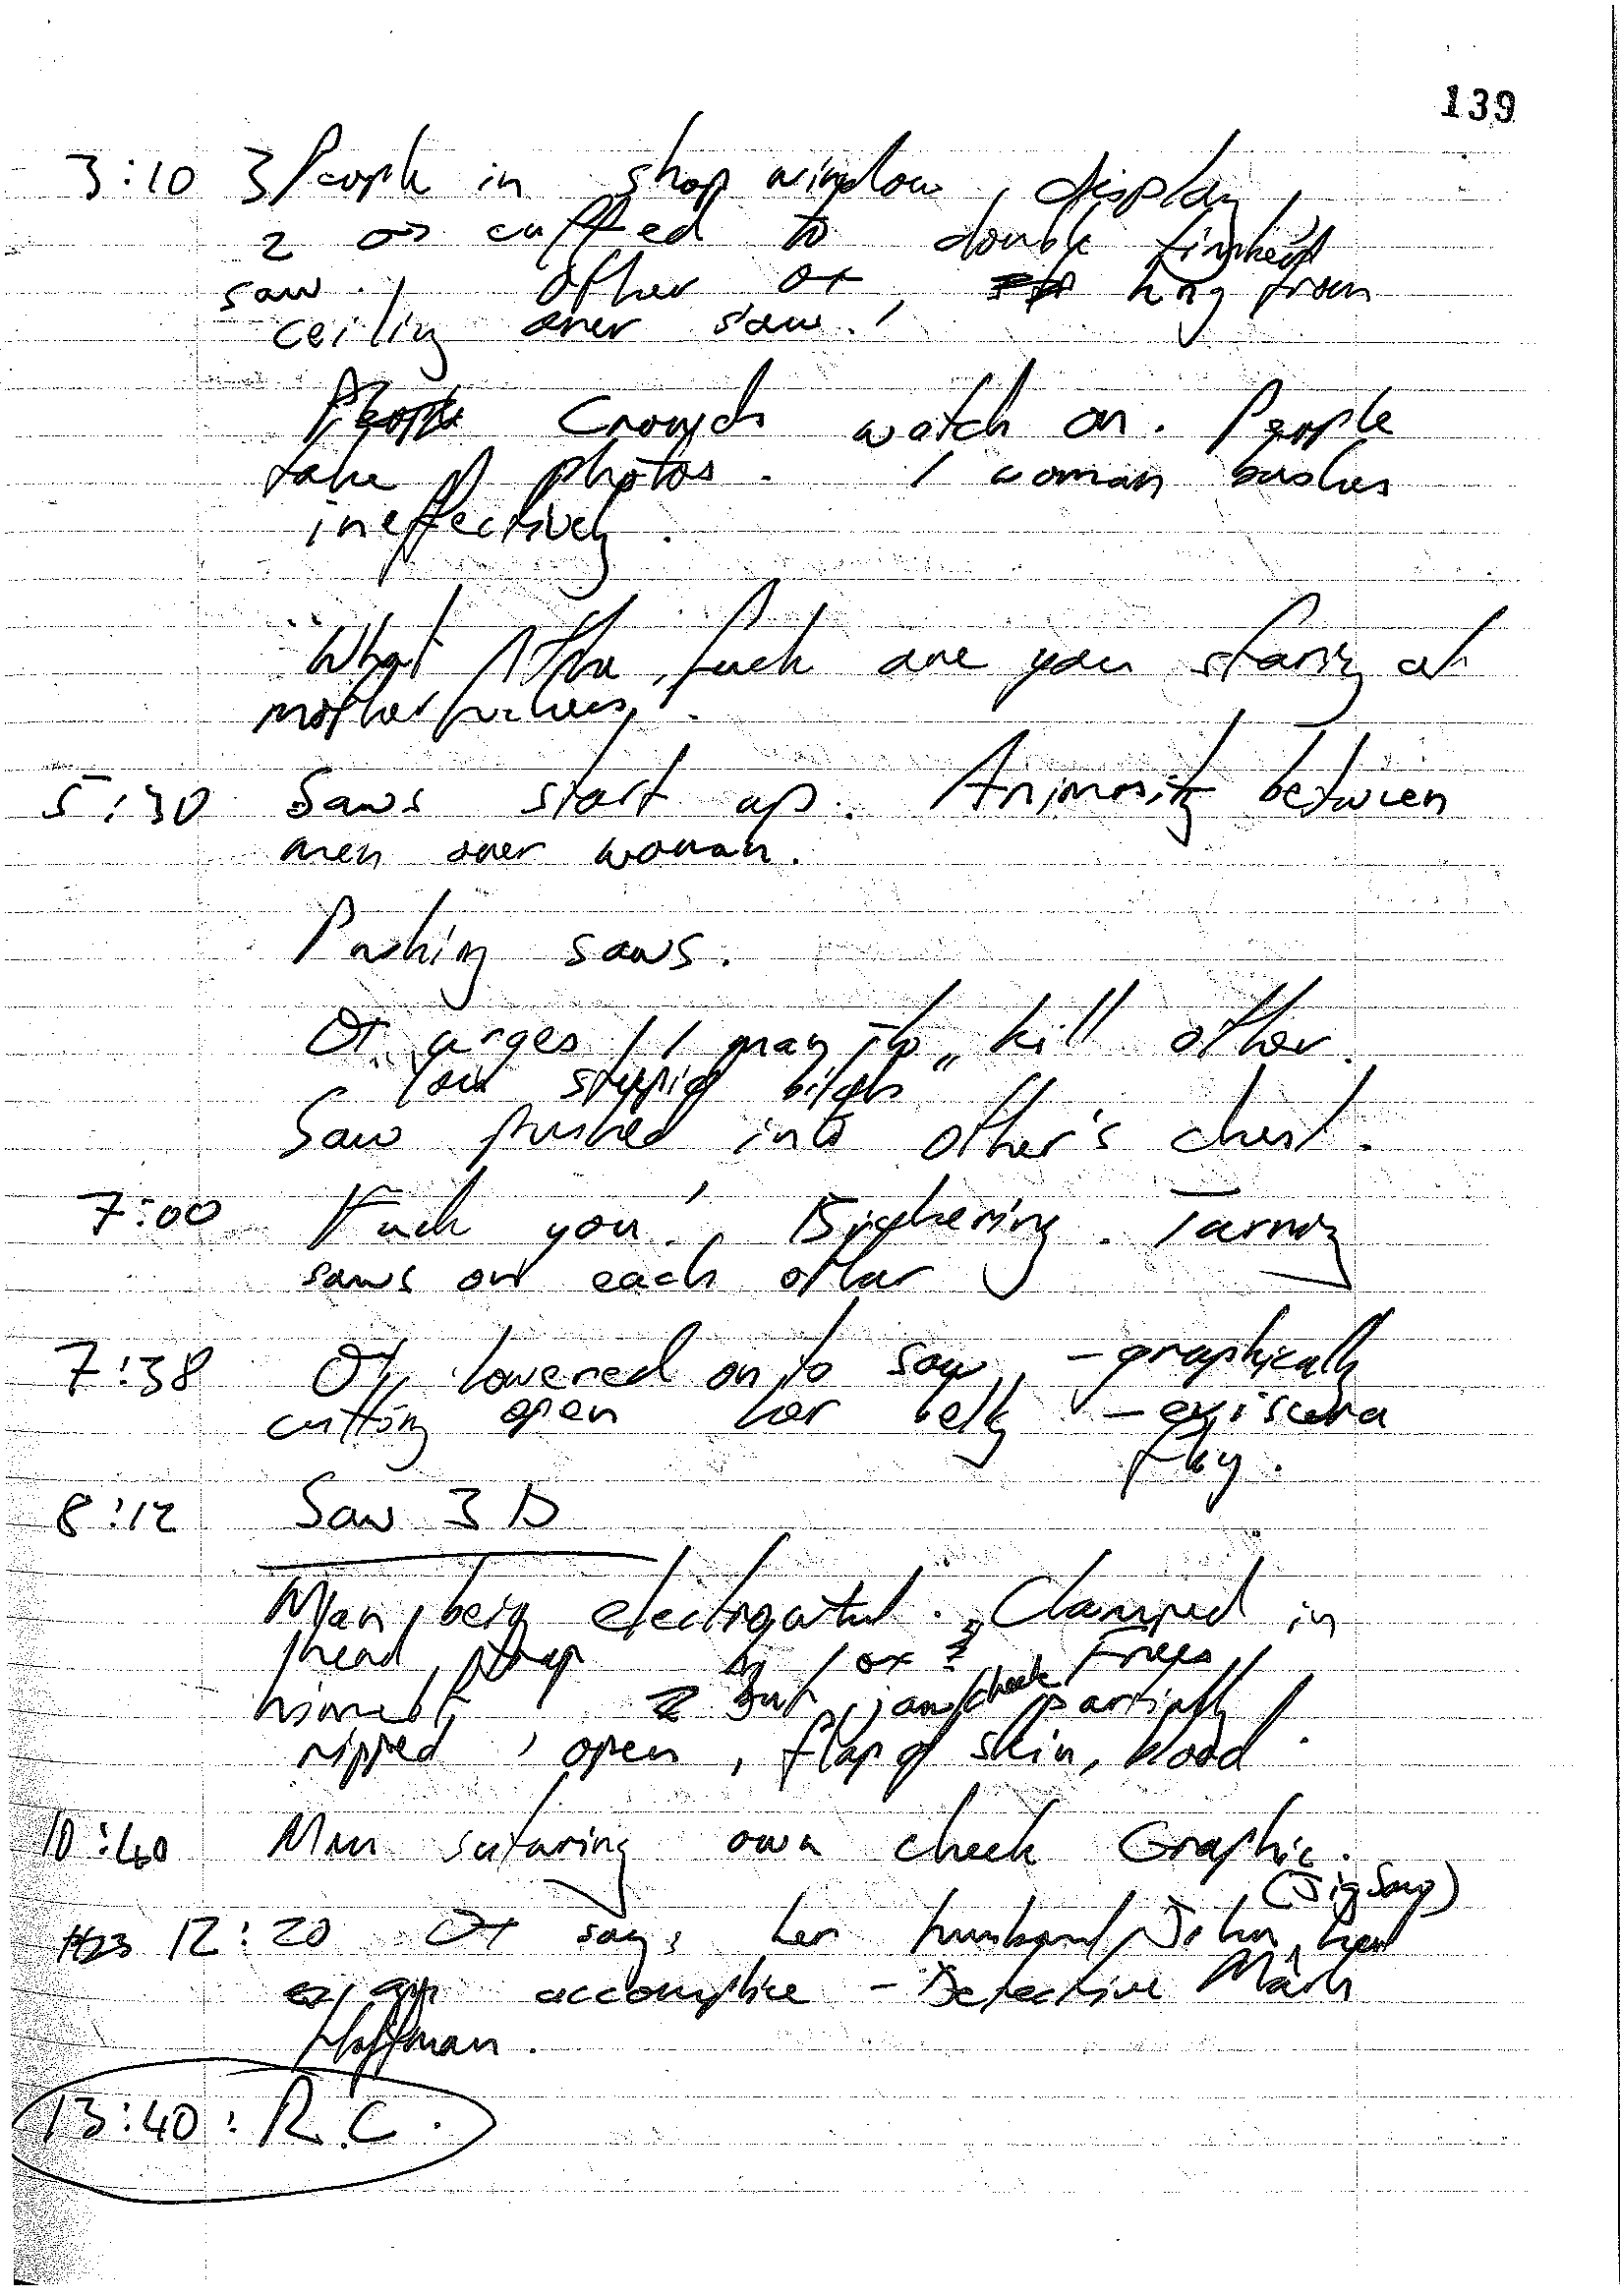 139
3:10 3 People in shop window display,
2 ♂♂ cuffed to double
saw. Other ♀, hung from
ceiling over saw.
Crowds watch on. People
take photos. 1 woman bashes
ineffectively.
"What the fuck are you staring at
motherfuckers".
5:30 Saws start up. Animosity between
men over woman.
Pushing saws.
♀ urges 1 man to kill other.
"You stupid bitch"
Saw pushed into other's chest.
7:00 Fuck you! Bickering. Turning
saws on each other
7:38 ♀ lowered on to saw, - graphically
cutting open her belly - eviscera
fly.
8:12 Saw 3D
Man being electrocuted. Clamped in
head trap by ♀. Frees
himself But jaw/cheek partially
ripped open, flap of skin, blood.
10:40 Man suturing own cheek Graphic.
(Jig Saw)
12:20 ♀ says her husband John, had
accomplice - Detective Mark
Hoffman.
13:40: R.C.